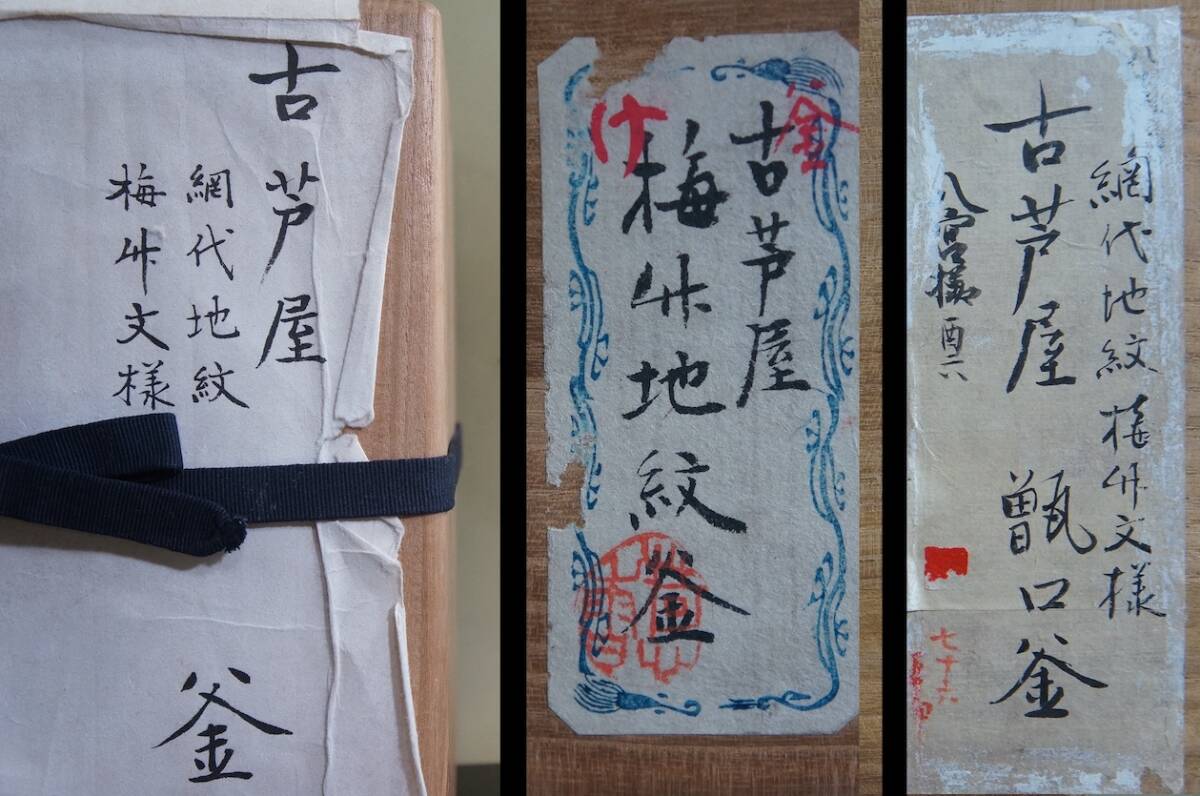 古芦屋
網代地紋
梅竹文様
釜
釜
古芦屋
け
梅竹地紋釜
網代地紋 梅竹文様
古芦屋 甑口釜
八宮様 酉六
七十六